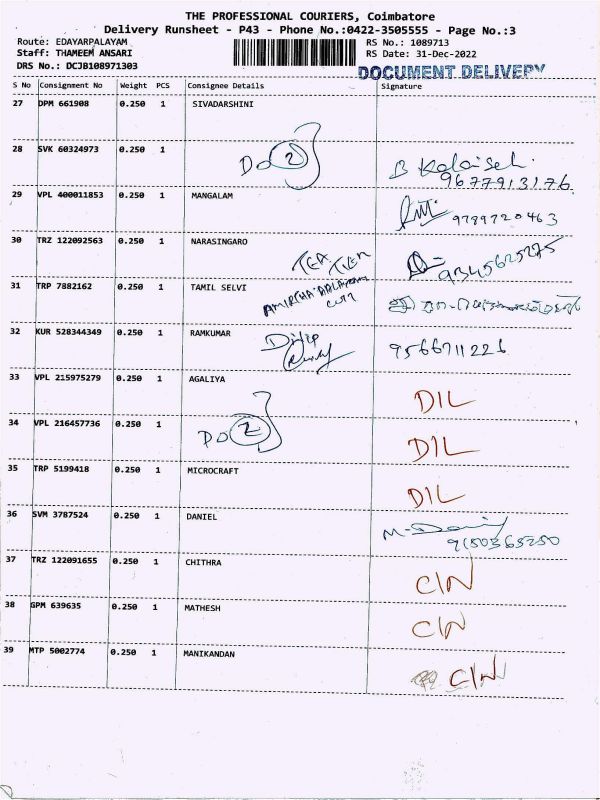 THE PROFESSIONAL COURIERS, Coimbatore
Delivery Runsheet - P43 - Phone No.:0422-3505555 - Page No.:3
Route: EDAYARPALAYAM RS No.: 1089713
Staff: THAMEEM ANSARI RS Date: 31-Dec-2022
DRS No.: DCJB108971303 DOCUMENT DELIVERY
S No Consignment No Weight PCS Consignee Details Signature
27 DPM 661908 0.250 1 SIVADARSHINI
Do 2
28 SVK 60324973 0.250 1
B Kalaisel.
9677913176
29 VPL 400011853 0.250 1 MANGALAM
9789720463
30 TRZ 122092563 0.250 1 NARASINGARO
TEA TIER 9345625275
31 TRP 7882162 0.250 1 TAMIL SELVI
32 KUR 528344349 0.250 1 RAMKUMAR
Dilip 9566711226
33 VPL 215975279 0.250 1 AGALIYA
DIL
34 VPL 216457736 0.250 1
DO 2 DIL
35 TRP 5199418 0.250 1 MICROCRAFT
DIL
36 SVM 3787524 0.250 1 DANIEL
9150365250
37 TRZ 122091655 0.250 1 CHITHRA
C/N
38 GPM 639635 0.250 1 MATHESH
C/N
39 MTP 5002774 0.250 1 MANIKANDAN
C/N